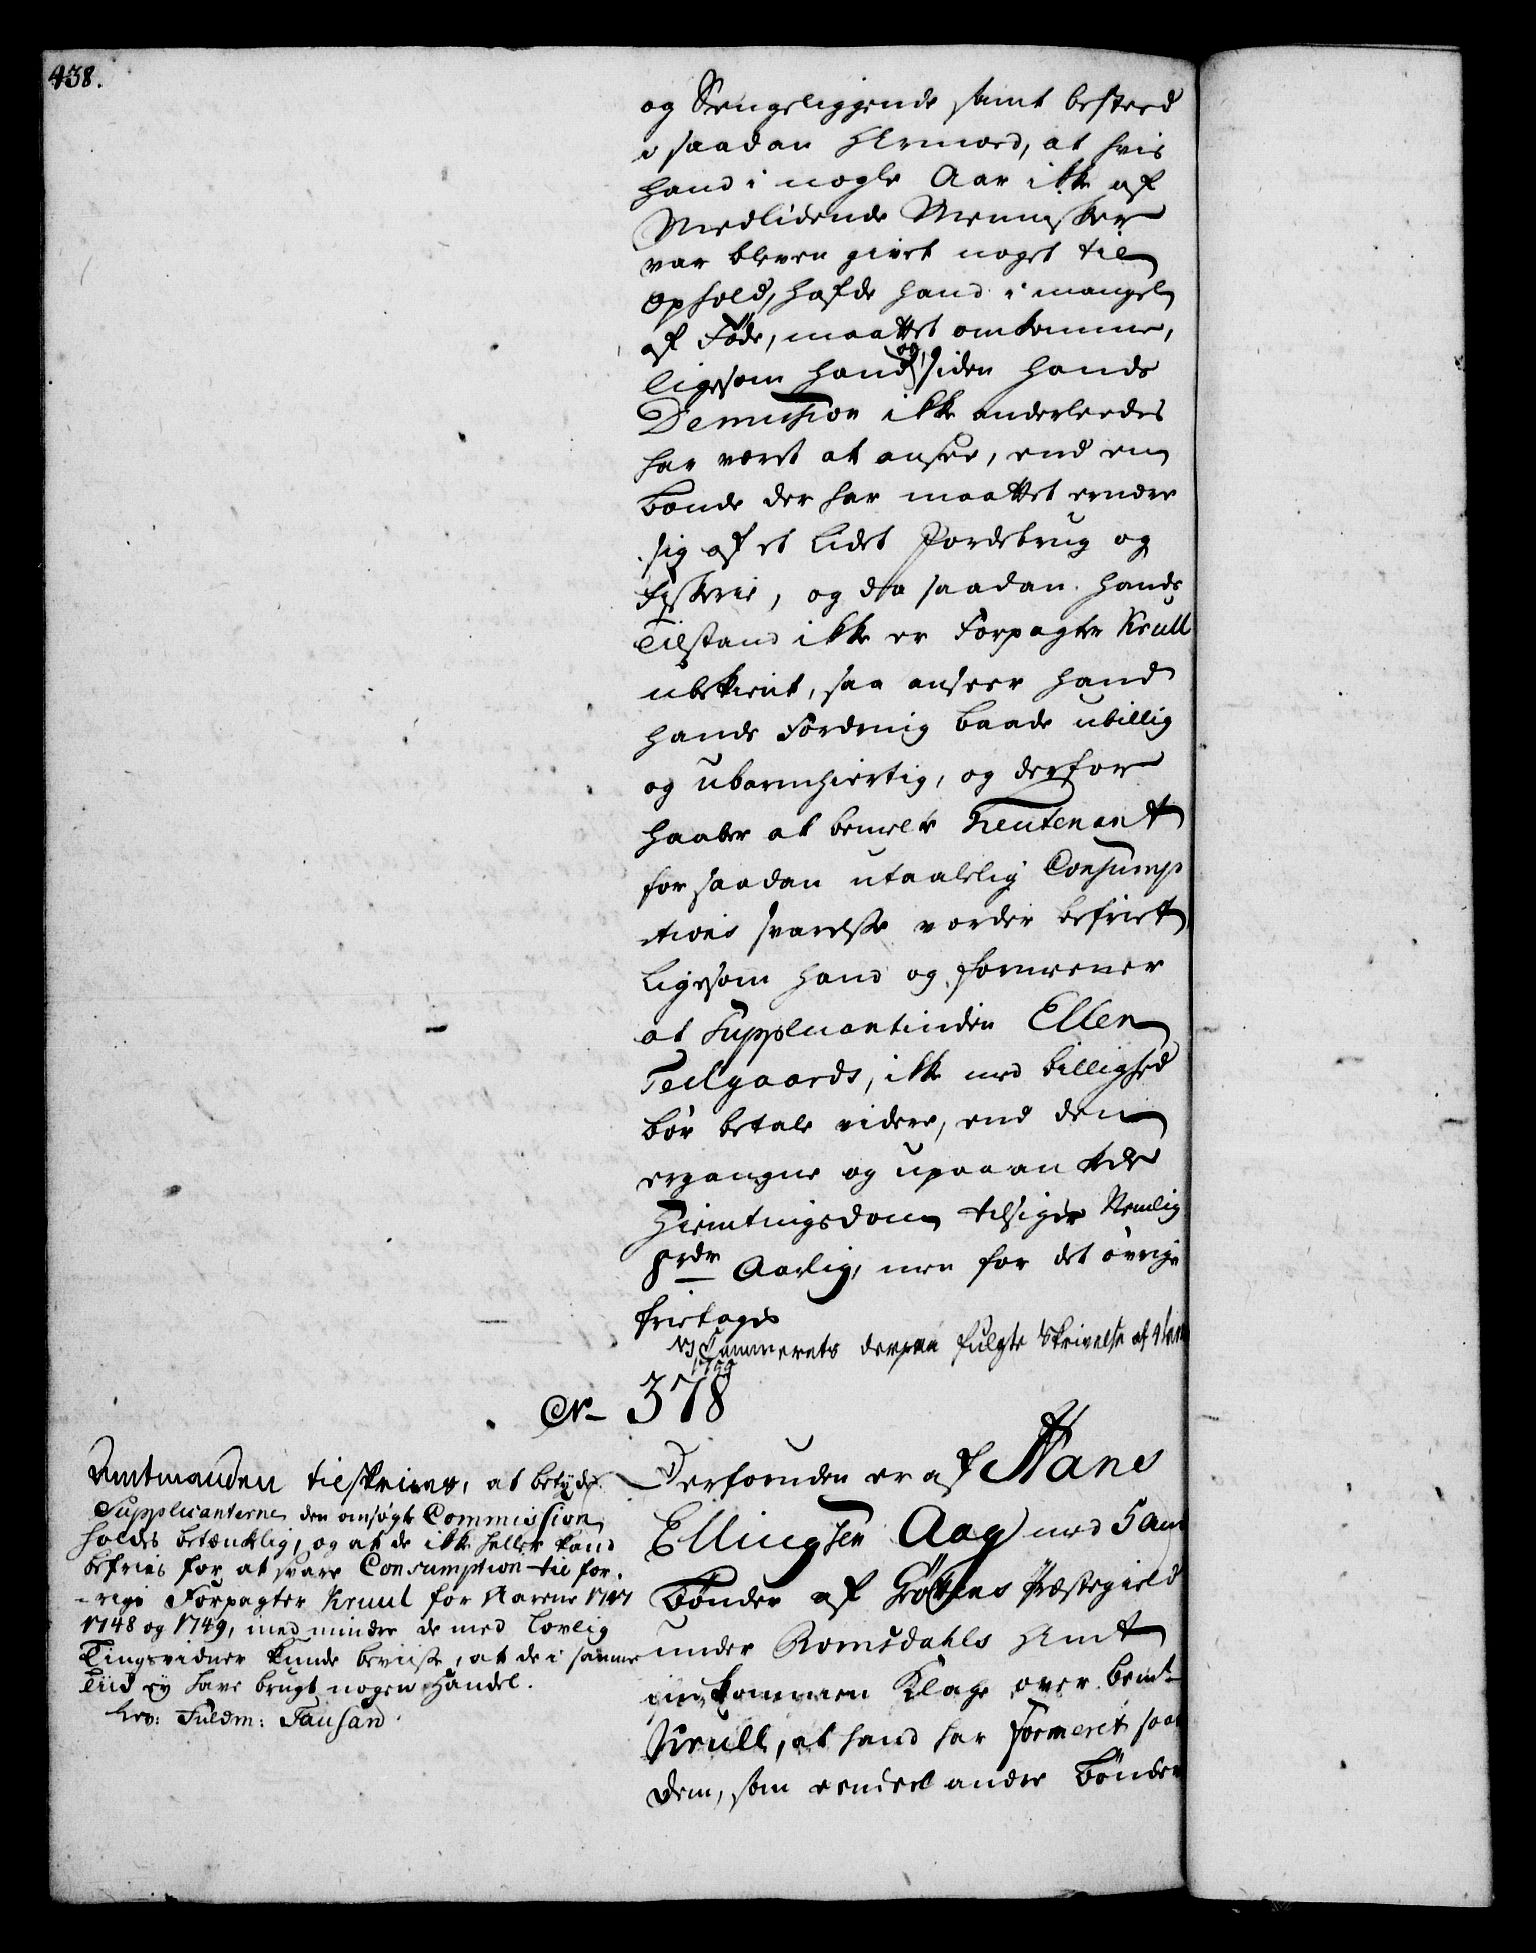 438.
og Sengeliggende samt bested
i saadan Armoed, at hvis
hand i nogle Aar ikke af
Medlidende Mennisker
var bleven givet noget til
Ophold, hafde hand i mangel
af Føde, maattet omkomme,
ligesom hand og siden hands
Demission ikke anderleedes
har været at ansee, end en
bonde der har maattet ernære
sig af et lidet Jordebrug og
Fiskerie, og da saadan hands
Tilstand ikke er Forpagter Krull
ubekient, saa anseer hand
hands Fordring baade ubillig
og ubarmhiertig, og derfor
haaber at bemelte Lieutenant
for saadan utaalelig Consump
tions svarelse vorder befriet
ligesom hand og formeener
at Supplicantinden Ellen
Teilgaards, ikke med billighed
bør betale videre, end den
ergangne og upaaankede
Hiemtingsdom tilsiger Nemlig
8 rdr Aarlig, men for det øvrige
fritages
NB Cammerets derpaa fulgte Skrivelse af 4
1749
No 378
Amtmanden tilskrives, at betyde
Supplicanterne den ansøgte Commission
holdes betænklig, og at de ikke heller kand
befries for at svare Consumption til for-
rige Forpagter Kruul for Aarene 1747
1748 og 1749, med mindre de med lovlig
Tingsvidner kunde beviise, at de i samme
Tiid ey have brugt nogen Handel.
Lev: Fuldm: Tausan
Derforuden er af Hans
Ellingsen Aag med 5 an
Bønder af Præstegield
under Romsdahls Amt
indkommen Klage over bemte
Krull, at hand har formeret saa
dem, som eendeel andre Bønder